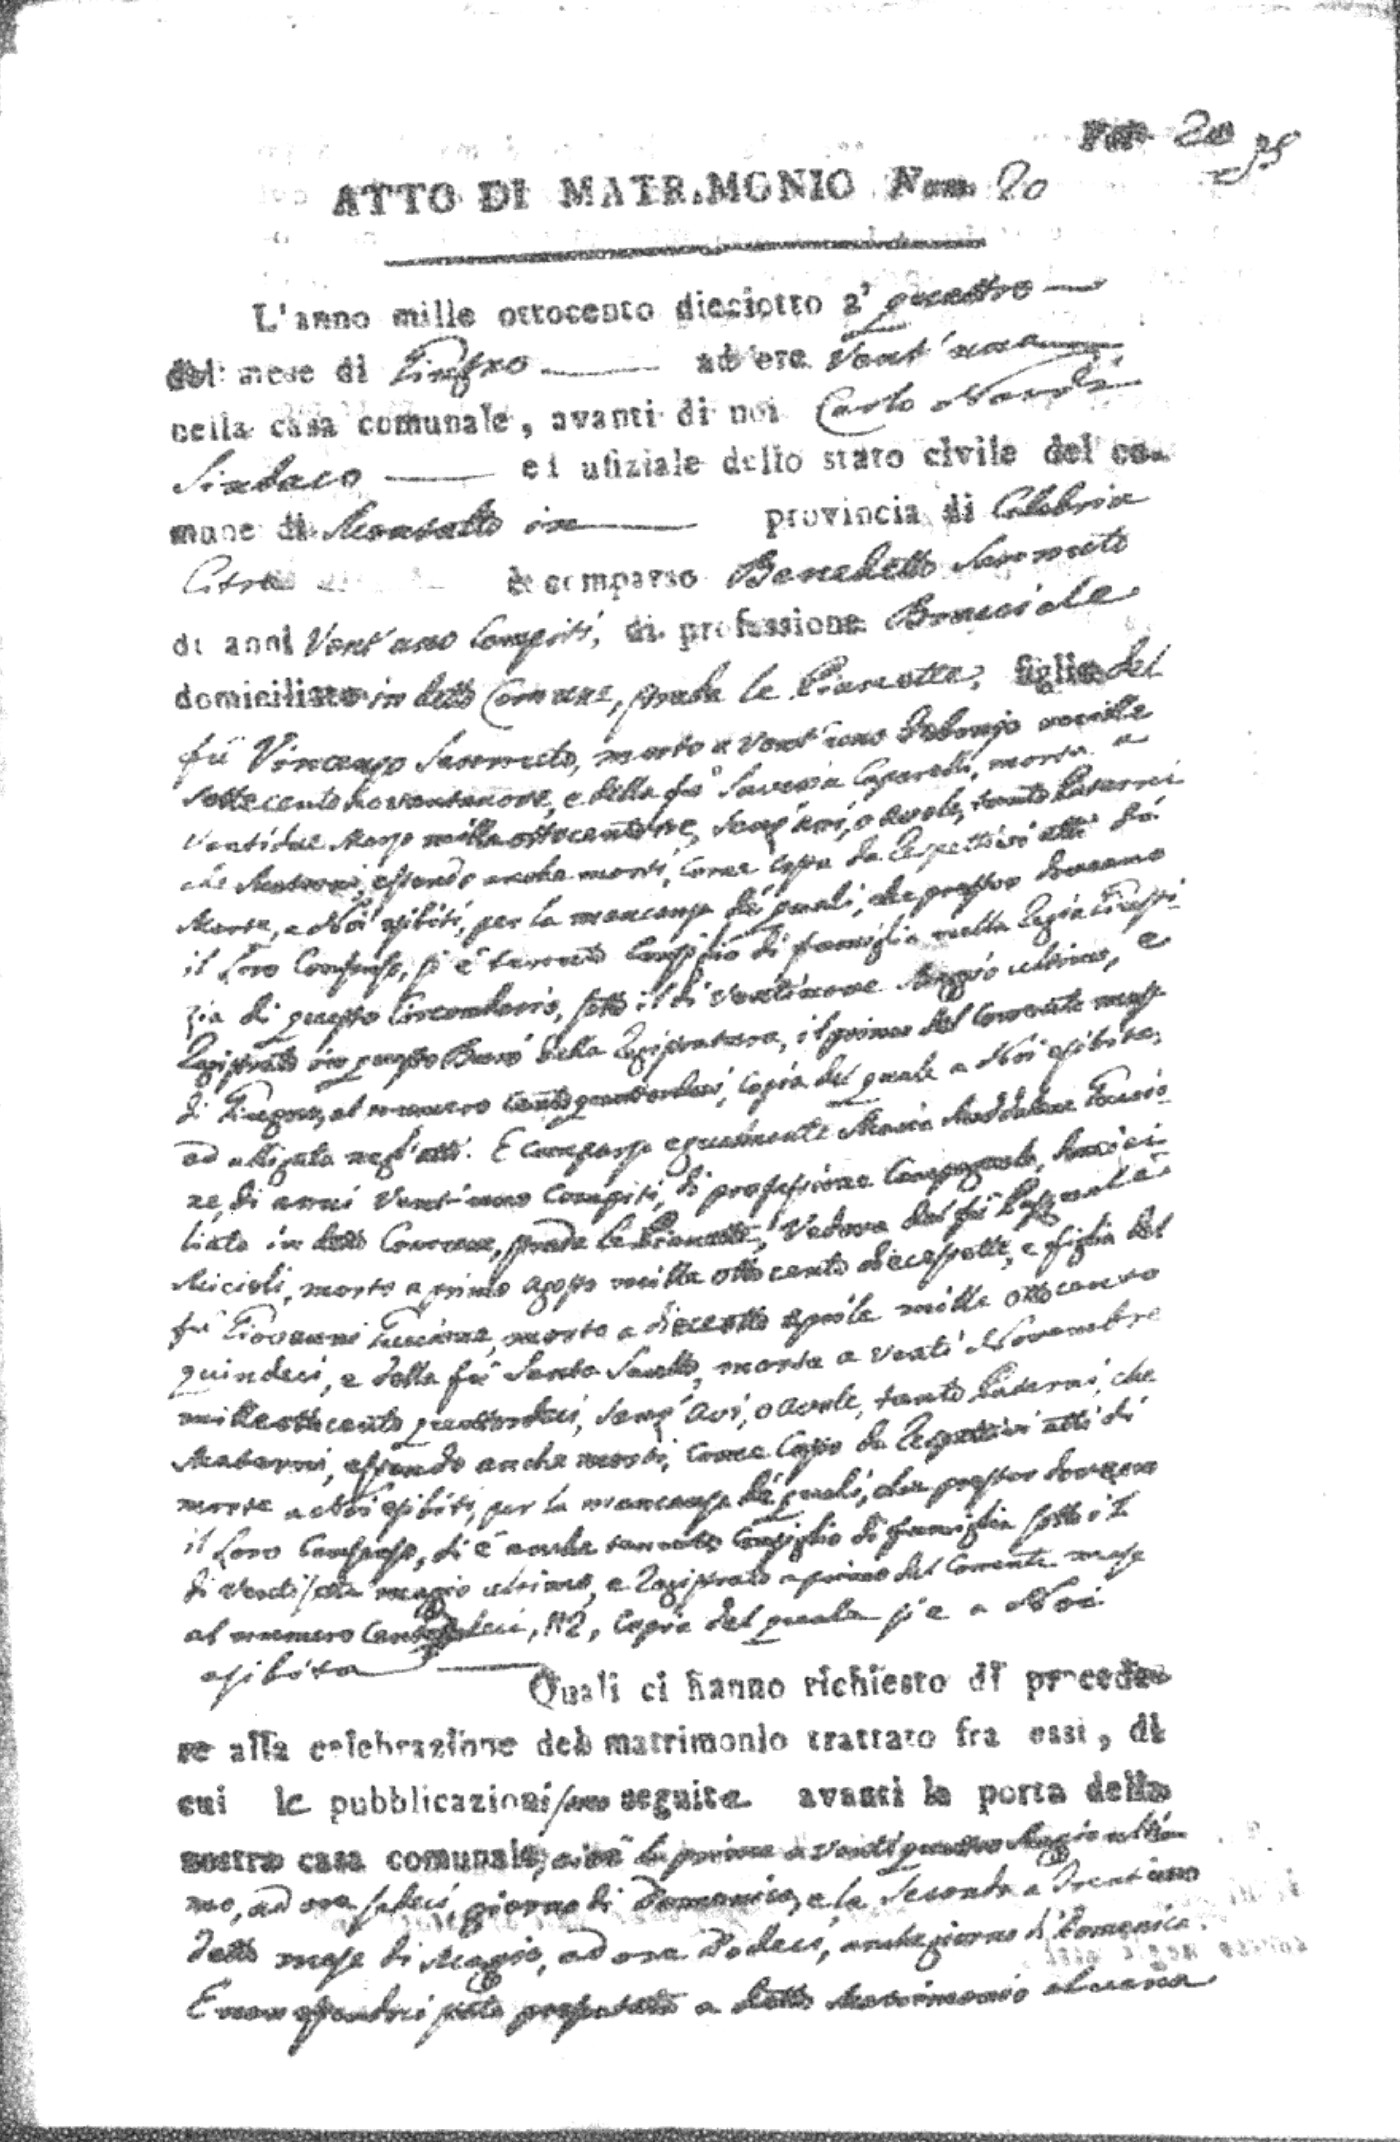 20
ATTO DI MATRIMONIO Num. 20
L'anno mille ottocento dieciotto a' quattro
del mese di Giugno ad ore vent'una
nella casa comunale, avanti di noi Carlo Nardi
Sindaco ed ufiziale dello stato civile del co-
mune di Montalto in provincia di Calabria
Citra è comparso Benedetto Sammeto
di anni Vent'uno Compiti, di professione Bracciale
domiciliato in detto Comune, strada le Pianette, figlio del
fù Vincenzo Sammeto, morto a vent'uno Febrajo mille
settecento novantanove, e della fù Saveria Caparelli, morta a
ventidue Marzo mille ottocento tre, senz'avi, o avole, tanto Paterni
che Materni, essendo anche morti, come costa da respettivi atti di
Morte, a Noi esibiti, per la mancanza de' quali, che prestar doveano
il loro Consenso, si è tenuto Consiglio di famiglia nella Regia Giusti-
zia di questo Circondario, sotto il di ventinove Maggio ultimo, e
Registrato in questo Burò della Registratura, il primo del corrente mese
di Giugno, al numero cento quattordeci, copia del quale a Noi esibita,
ed alligata negl'atti. È comparsa egualmente Maria Maddalena Faucio-
ne, di anni Vent'uno Compiti, di professione Campagnola, domici-
liata in detto Comune, strada le Pianette, Vedova del fù Pasquale
Micieli, morto a primo Agosto mille ottocento diecesette, e figlia del
fù Giovanni morto a dieceotto aprile mille ottocento
quindeci, e della fù Santa morta a venti Novembre
mille ottocento quattordeci, senz'avi, o avole, tanto Paterni, che
Materni, essendo anche morti, come costa da respettivi atti di
morte a Noi esibiti, per la mancanza de' quali, che prestar doveano
il loro Consenso, si è anche tenuto Consiglio di famiglia sotto il
di ventisette maggio ultimo, e Registrato a primo del corrente mese
al numero 112, copia del quale si è a Noi
esibita Quali ci hanno richiesto di procede-
re alla celebrazione del matrimonio trattato fra essi, di
cui le pubblicazioni sono seguite avanti la porta della
nostra casa comunale, cioè la prima a ventiquattro Maggio ulti-
mo, ad ore sedeci, giorno di Domenica, e la seconda a Trentuno
detto mese di Maggio, ad ore dodeci, anche giorno di Domenica.
E non essendoci stata presentata a detto Matrimonio alcuna